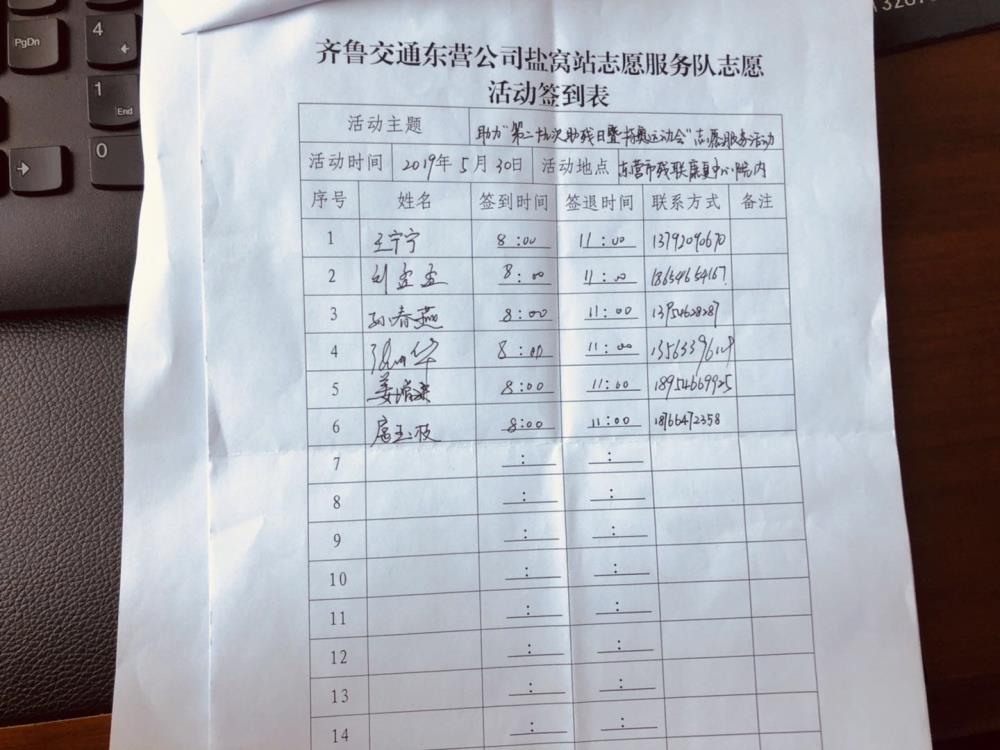 PgDn
4
1
End
0
齐鲁交通东营公司盐窝站志愿服务队志愿
活动签到表
活动主题 助力"第二十九次助残日暨特奥运动会"志愿服务活动
活动时间 2019年5月30日 活动地点 东营市残联康复中心院内
序号 姓名 签到时间 签退时间 联系方式 备注
1 王宁宁 8:00 11:00 13792090670
2 刘孟孟 8:00 11:00 18654654167
3 孙春燕 8:00 11:00
4 8:00 11:00
5 8:00 11:00 18954669925
6 8:00 11:00 18766472358
7 : :
8 : :
9 : :
10 : :
11 : :
12 : :
13 : :
14 : :